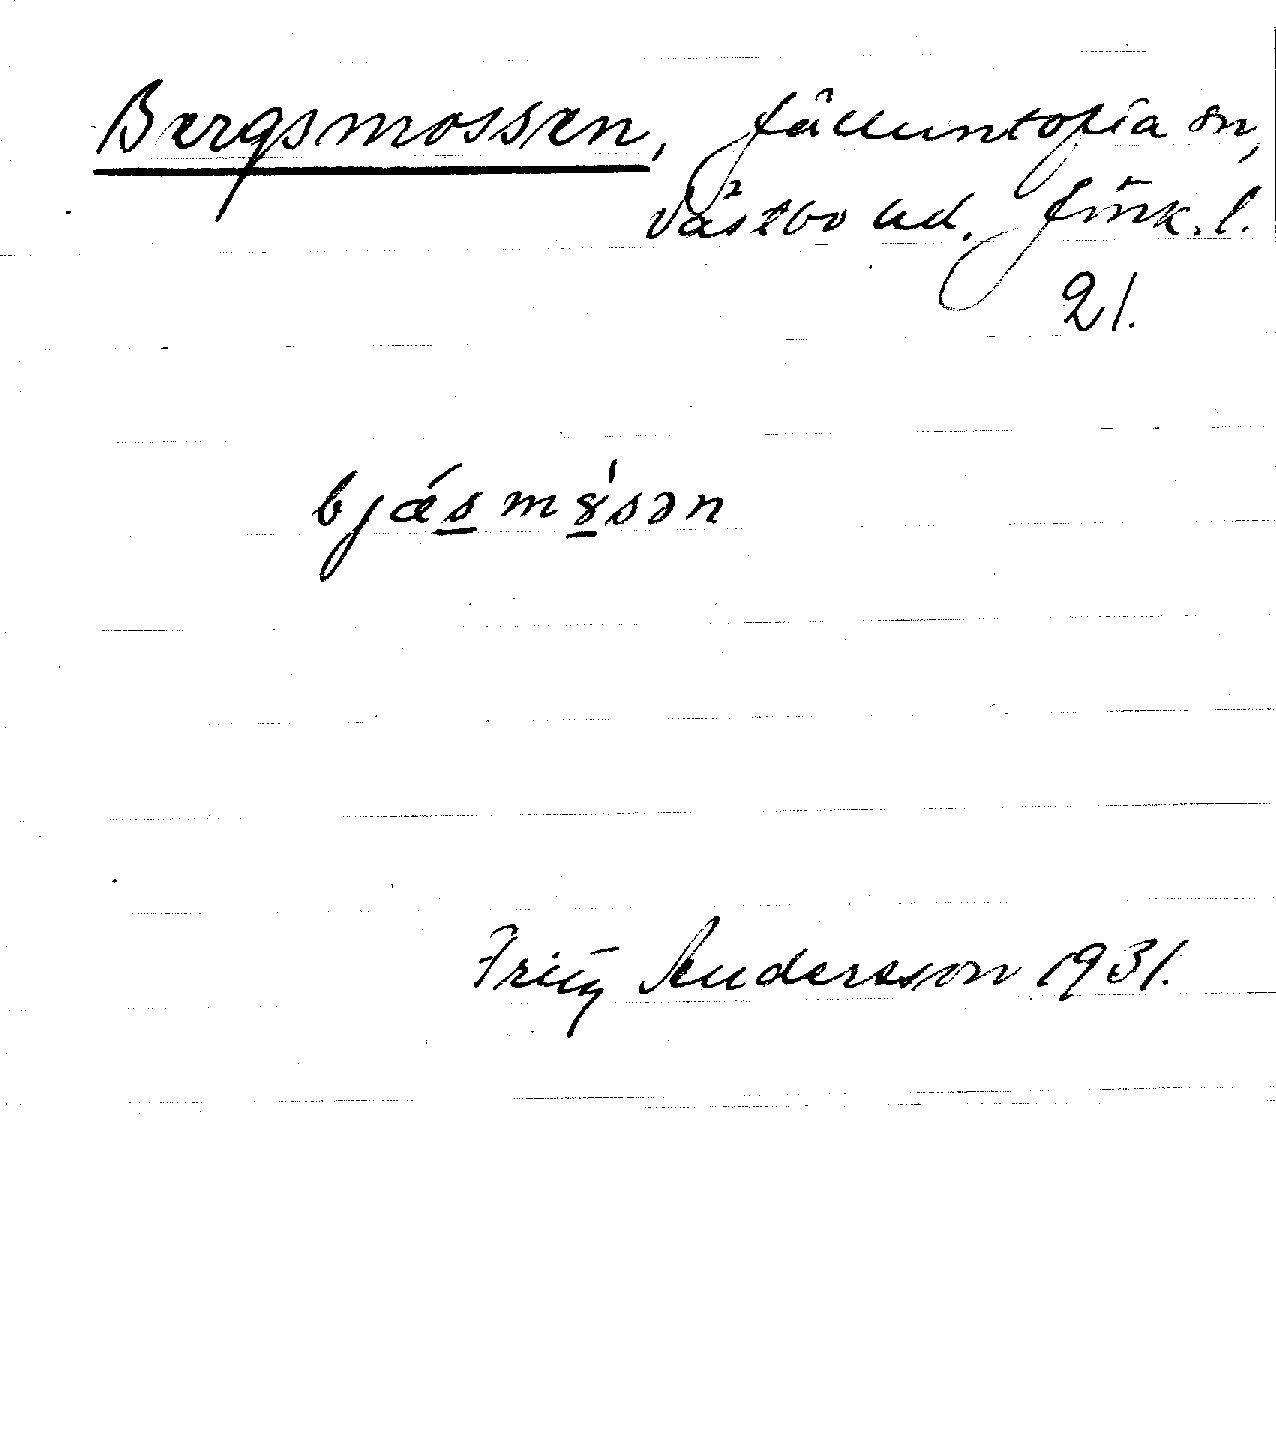 Bergsmossen, Jälluntofta sn,
Västbo hd. Jönk. l.
21.
bjǽs̲mɤ̲́sən
Fritz Andersson 1931.